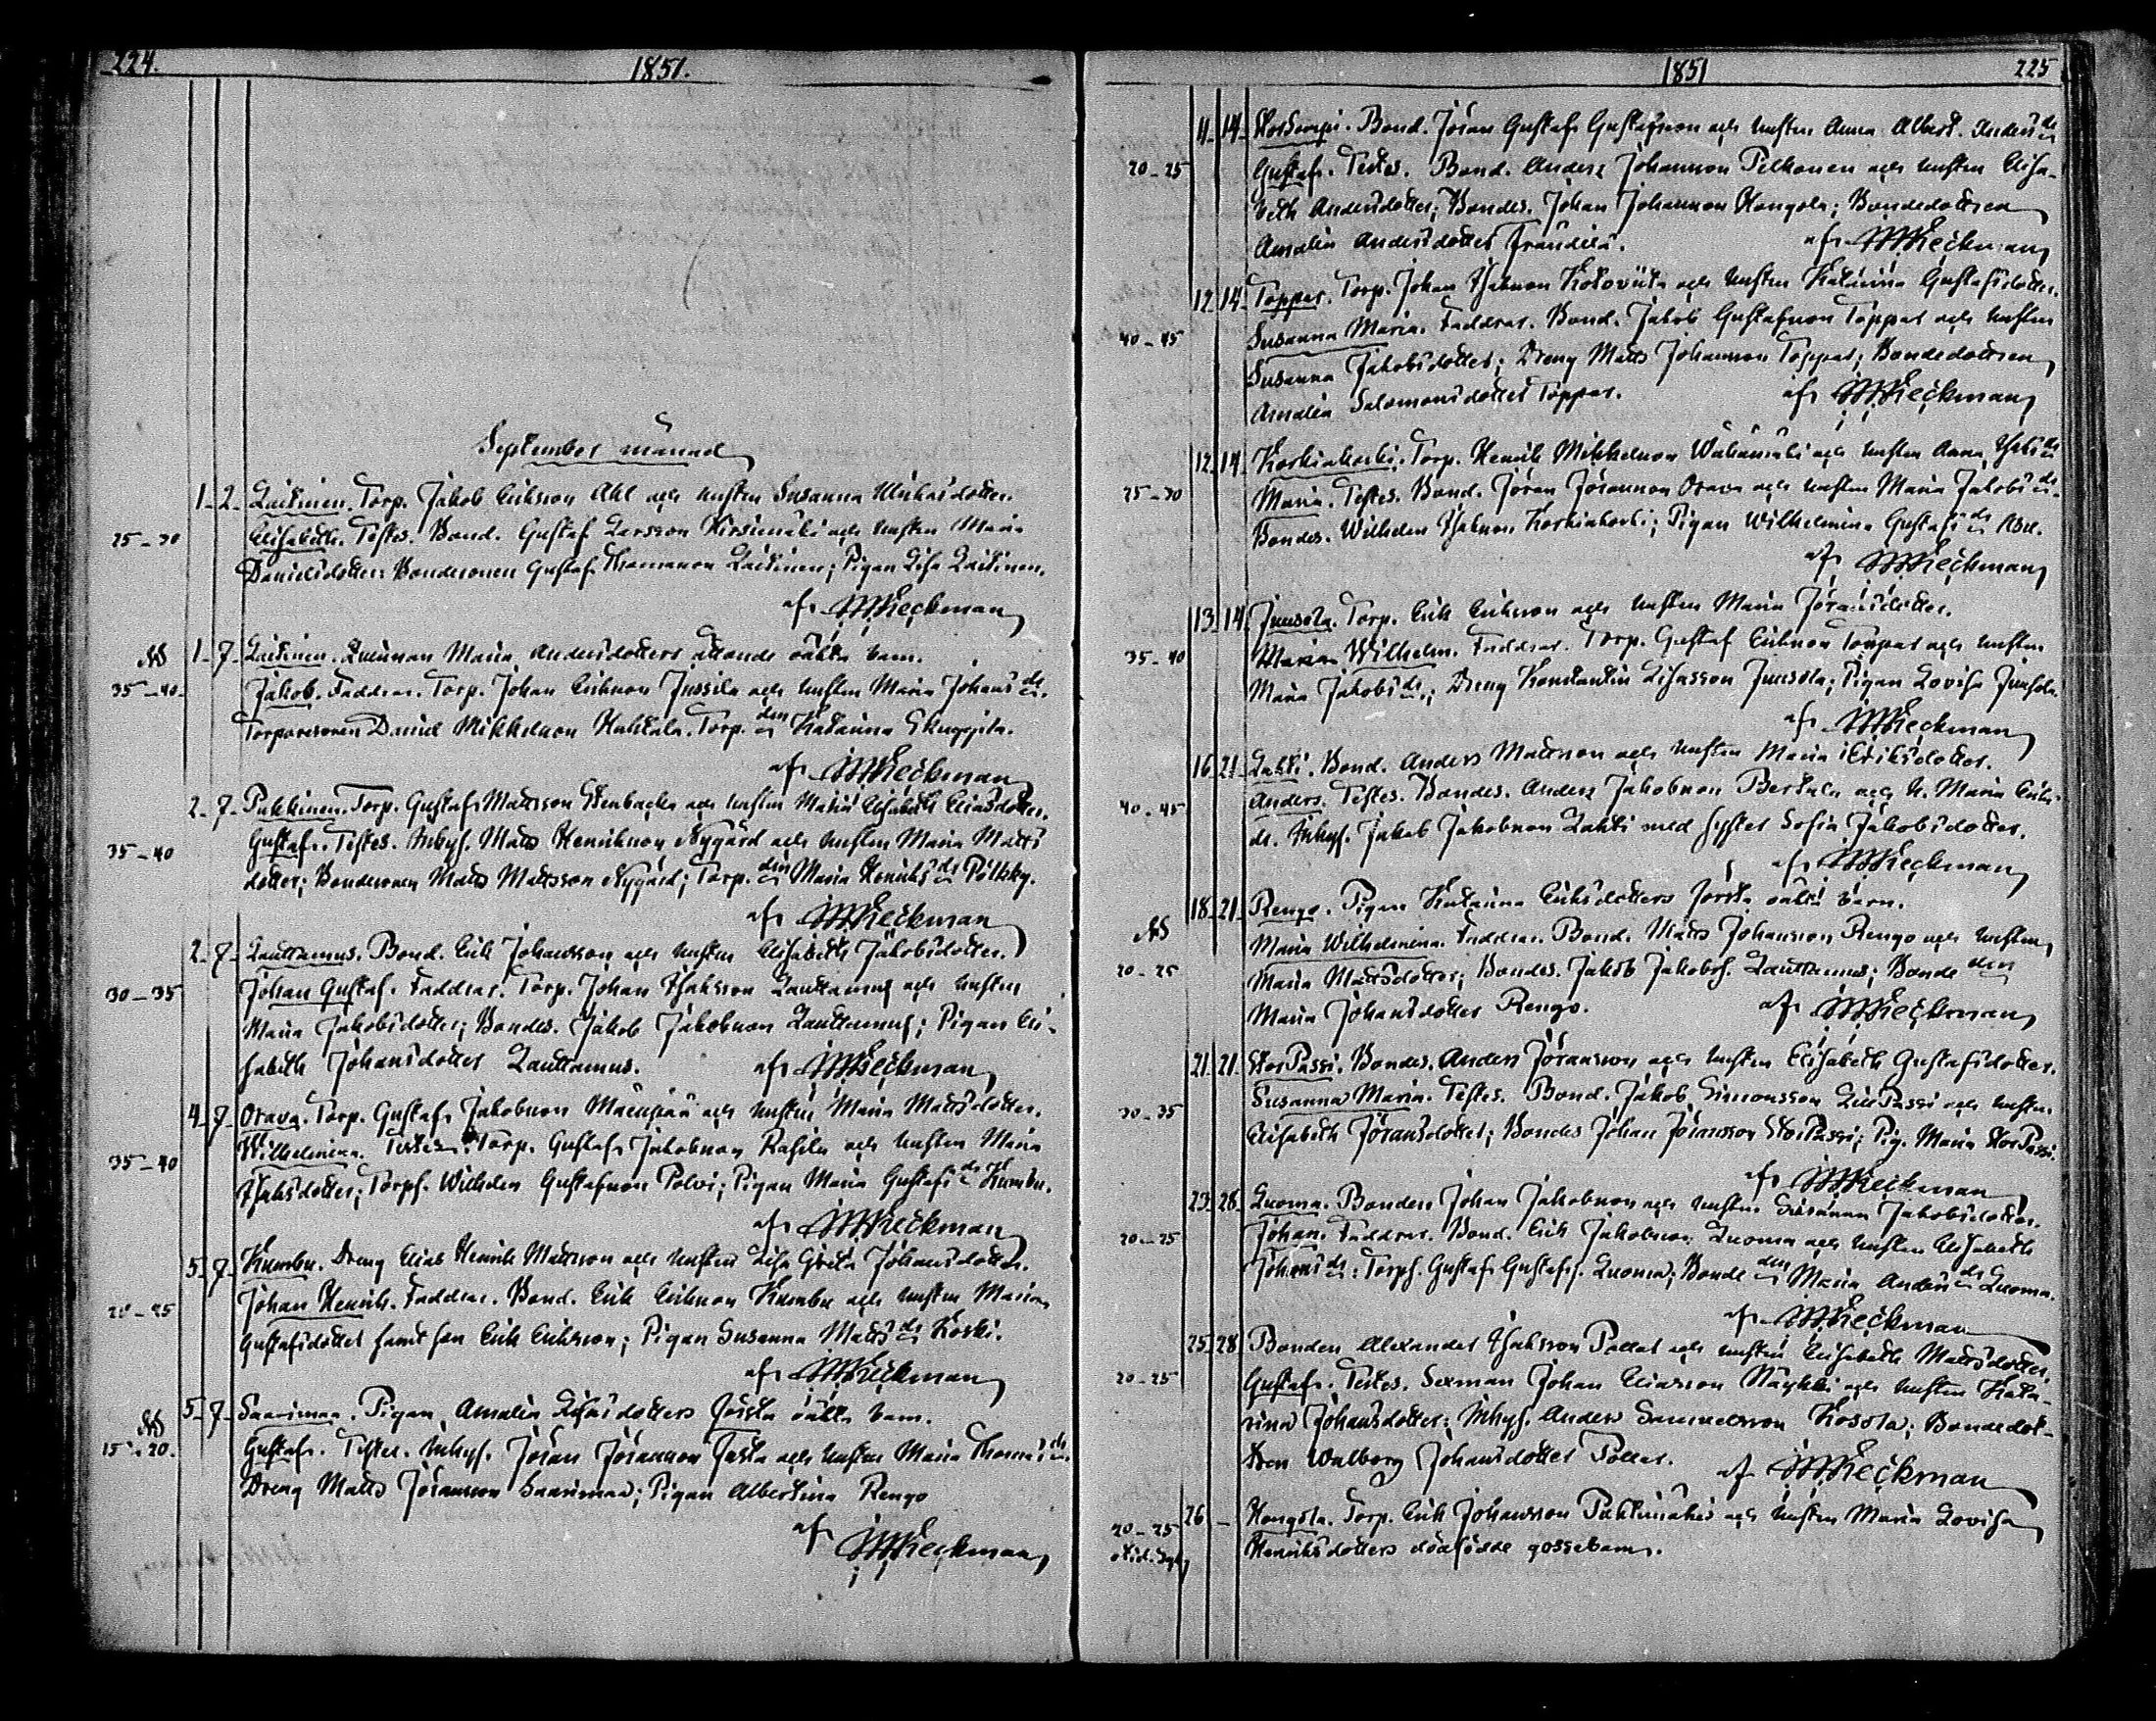 224.
1851.
September månad
1. 2. Laitinen. Torp. Jakob Eriksson Ahl och hustru Susanna Michelsdotter.
25-30 Elisabeth. Testes. Bond. Gustaf Larsson Hirsimäki och hustru Maria
Danielsdotter; Bondesonen Gustaf Thomasson Laitinen; Pigan Lisa Laitinen.
af JMReckman
NB 1. 7. Laitinen. Qvinnan Maria Andersdotters åttonde oäkta barn.
35-40. Jakob. Faddrar. Torp. Johan Eriksson Jussila och hustru Maria Johans ds.
Torparesonen Daniel Mikkelsson Huhtala. Torp. den Katarina Skuppila.
af JMReckman
2. 7. Pukkinen. Torp. Gustaf Mattsson Stenbacka och hustru Maria Elisabeth Eliasdotter.
35-40 Gustaf. Testes. Inhys. Matts Henriksson Nygård och hustru Maria Matts
dotter; Bondesonen Matts Mattsson Nygård; Torp. den Maria Henriks ds Pölkky.
af JMReckman
2. 7. Lauttamus. Bond. Erik Johansson och hustru Elisabeth Jakobsdotter.
30-35 Johan Gustaf. Faddrar. Torp. Johan Isaksson Lauttamus och hustru
Maria Jakobsdotter; Bondes. Jakob Jakobsson Lauttamus; Pigan Eli-
sabeth Johansdotter Lauttamus. af JMReckman
4. 7. Orava. Torp. Gustaf Jakobsson Mäenpää och hustru Maria Mattsdotter.
35-40 Wilhelmina. Testes. Torp. Gustaf Jakobsson Rasila och hustru Maria
Isaksdotter; Torps. Wilhelm Gustafsson Polvi; Pigan Maria Gustafs ds Kumbu.
af JMReckman
5. 7. Kumbu. Dreng Elias Henrik Mattsson och hustru Lisa Greta Johansdotter.
20-25 Johan Henrik. Faddrar. Bond. Erik Eriksson Kumbu och hustru Maria
Gustafsdotter samt son Erik Eriksson; Pigan Susanna Matts ds Koski.
af JMReckman
NB 5. 7. Saarimaa. Pigan Amalia Lisasdotters första oäkta barn.
15-20. Gustaf. Testes. Inhys. Jöran Jöransson Tasta och hustru Maria Thomas ds.
Dreng Matts Jöransson Saarimaa; Pigan Albertina Rengo
af JMReckman
1851
225
11. 14. Storkarpi. Bond. Jöran Gustaf Gustafsson och hustru Anna Albert. Anders ds
20-25 Gustaf. Testes. Bond. Anders Johansson Pelkonen och hustru Elisa-
beth Andersdotter; Bondes. Johan Johansson Hongola; Bondedottren
Amalia Andersdotter Frändilä. af JMReckman
12. 14. Toppar. Torp. Johan Isaksson Kotoviita och hustru Katarina Gustafsdotter.
40-45 Susanna Maria. Faddrar. Bond. Jakob Gustafsson Toppar och hustru
Susanna Jakobsdotter; Dreng Matts Johansson Toppar; Bondedottren
Amalia Salomonsdotter Toppar. af JMReckman
12. 14. Korkiakoski. Torp. Henrik Mikkelsson Wähämäki och hustru Anna Isaks ds
25-30 Maria. Testes. Bond. Jöran Jöransson Orava och hustru Maria Jakobs ds.
Bondes. Wilhelm Isaksson Korkiakoski; Pigan Wilhelmina Gustafs ds Asu.
af JMReckman
13. 14. Juusola. Torp. Erik Eriksson och hustru Maria Jöransdotter.
35-40 Maria Wilhelm. Faddrar. Torp. Gustaf Eriksson Toppar och hustru
Maria Jakobs ds.; Dreng Konstantin Lisasson Juusola; Pigan Lovisa Juusola.
af JMReckman
16. 21. Lahti. Bond. Anders Mattsson och hustru Maria Eriksdotter.
40-45 Anders. Testes. Bondes. Anders Jakobsson Bertula och h. Maria Eriks
ds. Inhys. Jakob Jakobsson Lahti med syster Sofia Jakobsdotter.
af JMReckman
NB 18. 21. Rengo. Pigan Katarina Eriksdotters första oäkta barn.
20-25 Maria Wilhelmina. Faddrar. Bond. Matts Johansson Rengo och hustru
Maria Mattsdotter; Bondes. Jakob Jakobss. Lauttamus; Bonde den
Maria Johansdotter Rengo. af JMReckman
21. 21. StorPassi. Bondes. Anders Jöransson och hustru Elisabeth Gustafsdotter.
30-35 Susanna Maria. Testes. Bond. Jakob Simonsson LillPassi och hustru
Elisabeth Jöransdotter; Bondes Johan Jöransson StorPassi; Pig. Maria StorPassi.
af JMReckman
23. 28. Luoma. Bonden Johan Jakobsson och hustru Susanna Jakobsdotter.
20-25 Johan. Faddrar. Bond. Erik Jakobsson Luoma och hustru Elisabeth
Johans ds: Torps. Gustaf Gustafss. Luoma; Bonde den Maria Anders ds Luoma.
af JMReckman
25. 28 Bonden Alexander Isaksson Pollar och hustru Elisabeth Mattsdotter.
20-25 Gustaf. Testes. Sexman Johan Eliasson Näykki och hustru Kata-
rina Johansdotter; Inhys. Anders Samuelsson Kosola; Bondedot-
tren Walborg Johansdotter Pollar. af JMReckman
26 - Hongola. Torp. Erik Johansson Pahkimäki och hustru Maria Lovisa
20-25 Henriksdotters dödfödde gossebarn.